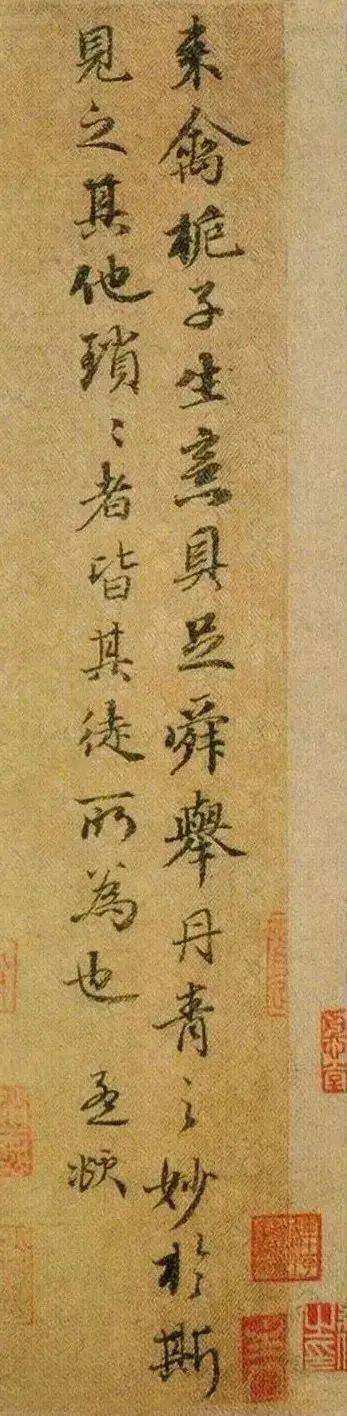 來禽栀子生意具足舜舉丹青之妙於斯
見之其他瑣〻者皆其徒所為也 孟頫